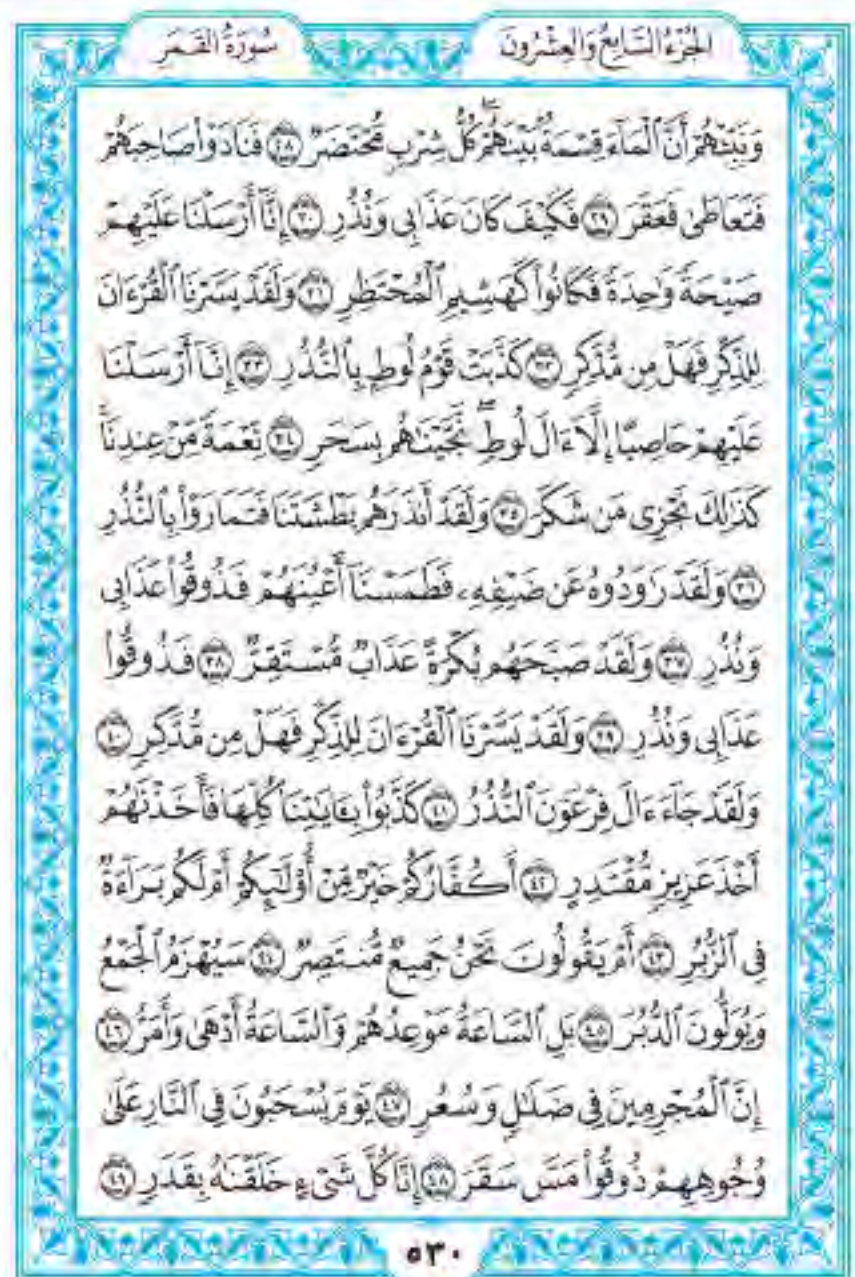 الجُزْءُ السَّابِعُ وَالعِشْرُونَ سُورَةُ القَمَر
وَنَبِّئْهُمْ أَنَّ ٱلْمَآءَ قِسْمَةٌۢ بَيْنَهُمْۖ كُلُّ شِرْبٍ مُّحْتَضَرٌ ٢٨ فَنَادَوْا۟ صَاحِبَهُمْ
فَتَعَاطَىٰ فَعَقَرَ ٢٩ فَكَيْفَ كَانَ عَذَابِى وَنُذُرِ ٣٠ إِنَّآ أَرْسَلْنَا عَلَيْهِمْ
صَيْحَةً وَٰحِدَةً فَكَانُوا۟ كَهَشِيمِ ٱلْمُحْتَظِرِ ٣١ وَلَقَدْ يَسَّرْنَا ٱلْقُرْءَانَ
لِلذِّكْرِ فَهَلْ مِن مُّدَّكِرٍ ٣٢ كَذَّبَتْ قَوْمُ لُوطٍۭ بِٱلنُّذُرِ ٣٣ إِنَّآ أَرْسَلْنَا
عَلَيْهِمْ حَاصِبًا إِلَّآ ءَالَ لُوطٍۖ نَّجَّيْنَٰهُم بِسَحَرٍ ٣٤ نِّعْمَةً مِّنْ عِندِنَاۚ
كَذَٰلِكَ نَجْزِى مَن شَكَرَ ٣٥ وَلَقَدْ أَنذَرَهُم بَطْشَتَنَا فَتَمَارَوْا۟ بِٱلنُّذُرِ
٣٦ وَلَقَدْ رَٰوَدُوهُ عَن ضَيْفِهِۦ فَطَمَسْنَآ أَعْيُنَهُمْ فَذُوقُوا۟ عَذَابِى
وَنُذُرِ ٣٧ وَلَقَدْ صَبَّحَهُم بُكْرَةً عَذَابٌ مُّسْتَقِرٌّ ٣٨ فَذُوقُوا۟
عَذَابِى وَنُذُرِ ٣٩ وَلَقَدْ يَسَّرْنَا ٱلْقُرْءَانَ لِلذِّكْرِ فَهَلْ مِن مُّدَّكِرٍ ٤٠
وَلَقَدْ جَآءَ ءَالَ فِرْعَوْنَ ٱلنُّذُرُ ٤١ كَذَّبُوا۟ بِـَٔايَٰتِنَا كُلِّهَا فَأَخَذْنَٰهُمْ
أَخْذَ عَزِيزٍ مُّقْتَدِرٍ ٤٢ أَكُفَّارُكُمْ خَيْرٌ مِّنْ أُو۟لَٰٓئِكُمْ أَمْ لَكُم بَرَآءَةٌ
فِى ٱلزُّبُرِ ٤٣ أَمْ يَقُولُونَ نَحْنُ جَمِيعٌ مُّنتَصِرٌ ٤٤ سَيُهْزَمُ ٱلْجَمْعُ
وَيُوَلُّونَ ٱلدُّبُرَ ٤٥ بَلِ ٱلسَّاعَةُ مَوْعِدُهُمْ وَٱلسَّاعَةُ أَدْهَىٰ وَأَمَرُّ ٤٦
إِنَّ ٱلْمُجْرِمِينَ فِى ضَلَٰلٍ وَسُعُرٍ ٤٧ يَوْمَ يُسْحَبُونَ فِى ٱلنَّارِ عَلَىٰ
وُجُوهِهِمْ ذُوقُوا۟ مَسَّ سَقَرَ ٤٨ إِنَّا كُلَّ شَىْءٍ خَلَقْنَٰهُ بِقَدَرٍ ٤٩
٥٣٠